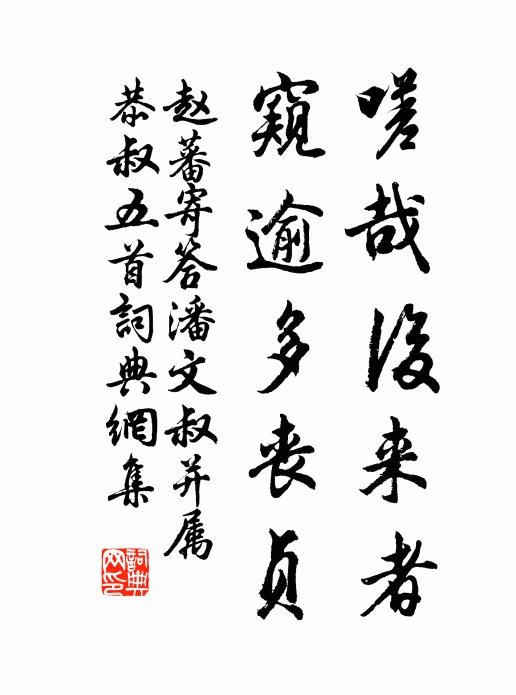 嗟哉後来者
窺逾多丧貞
赵蕃寄答潘文叔并属
恭叔五首詞典網集
詞典
网印